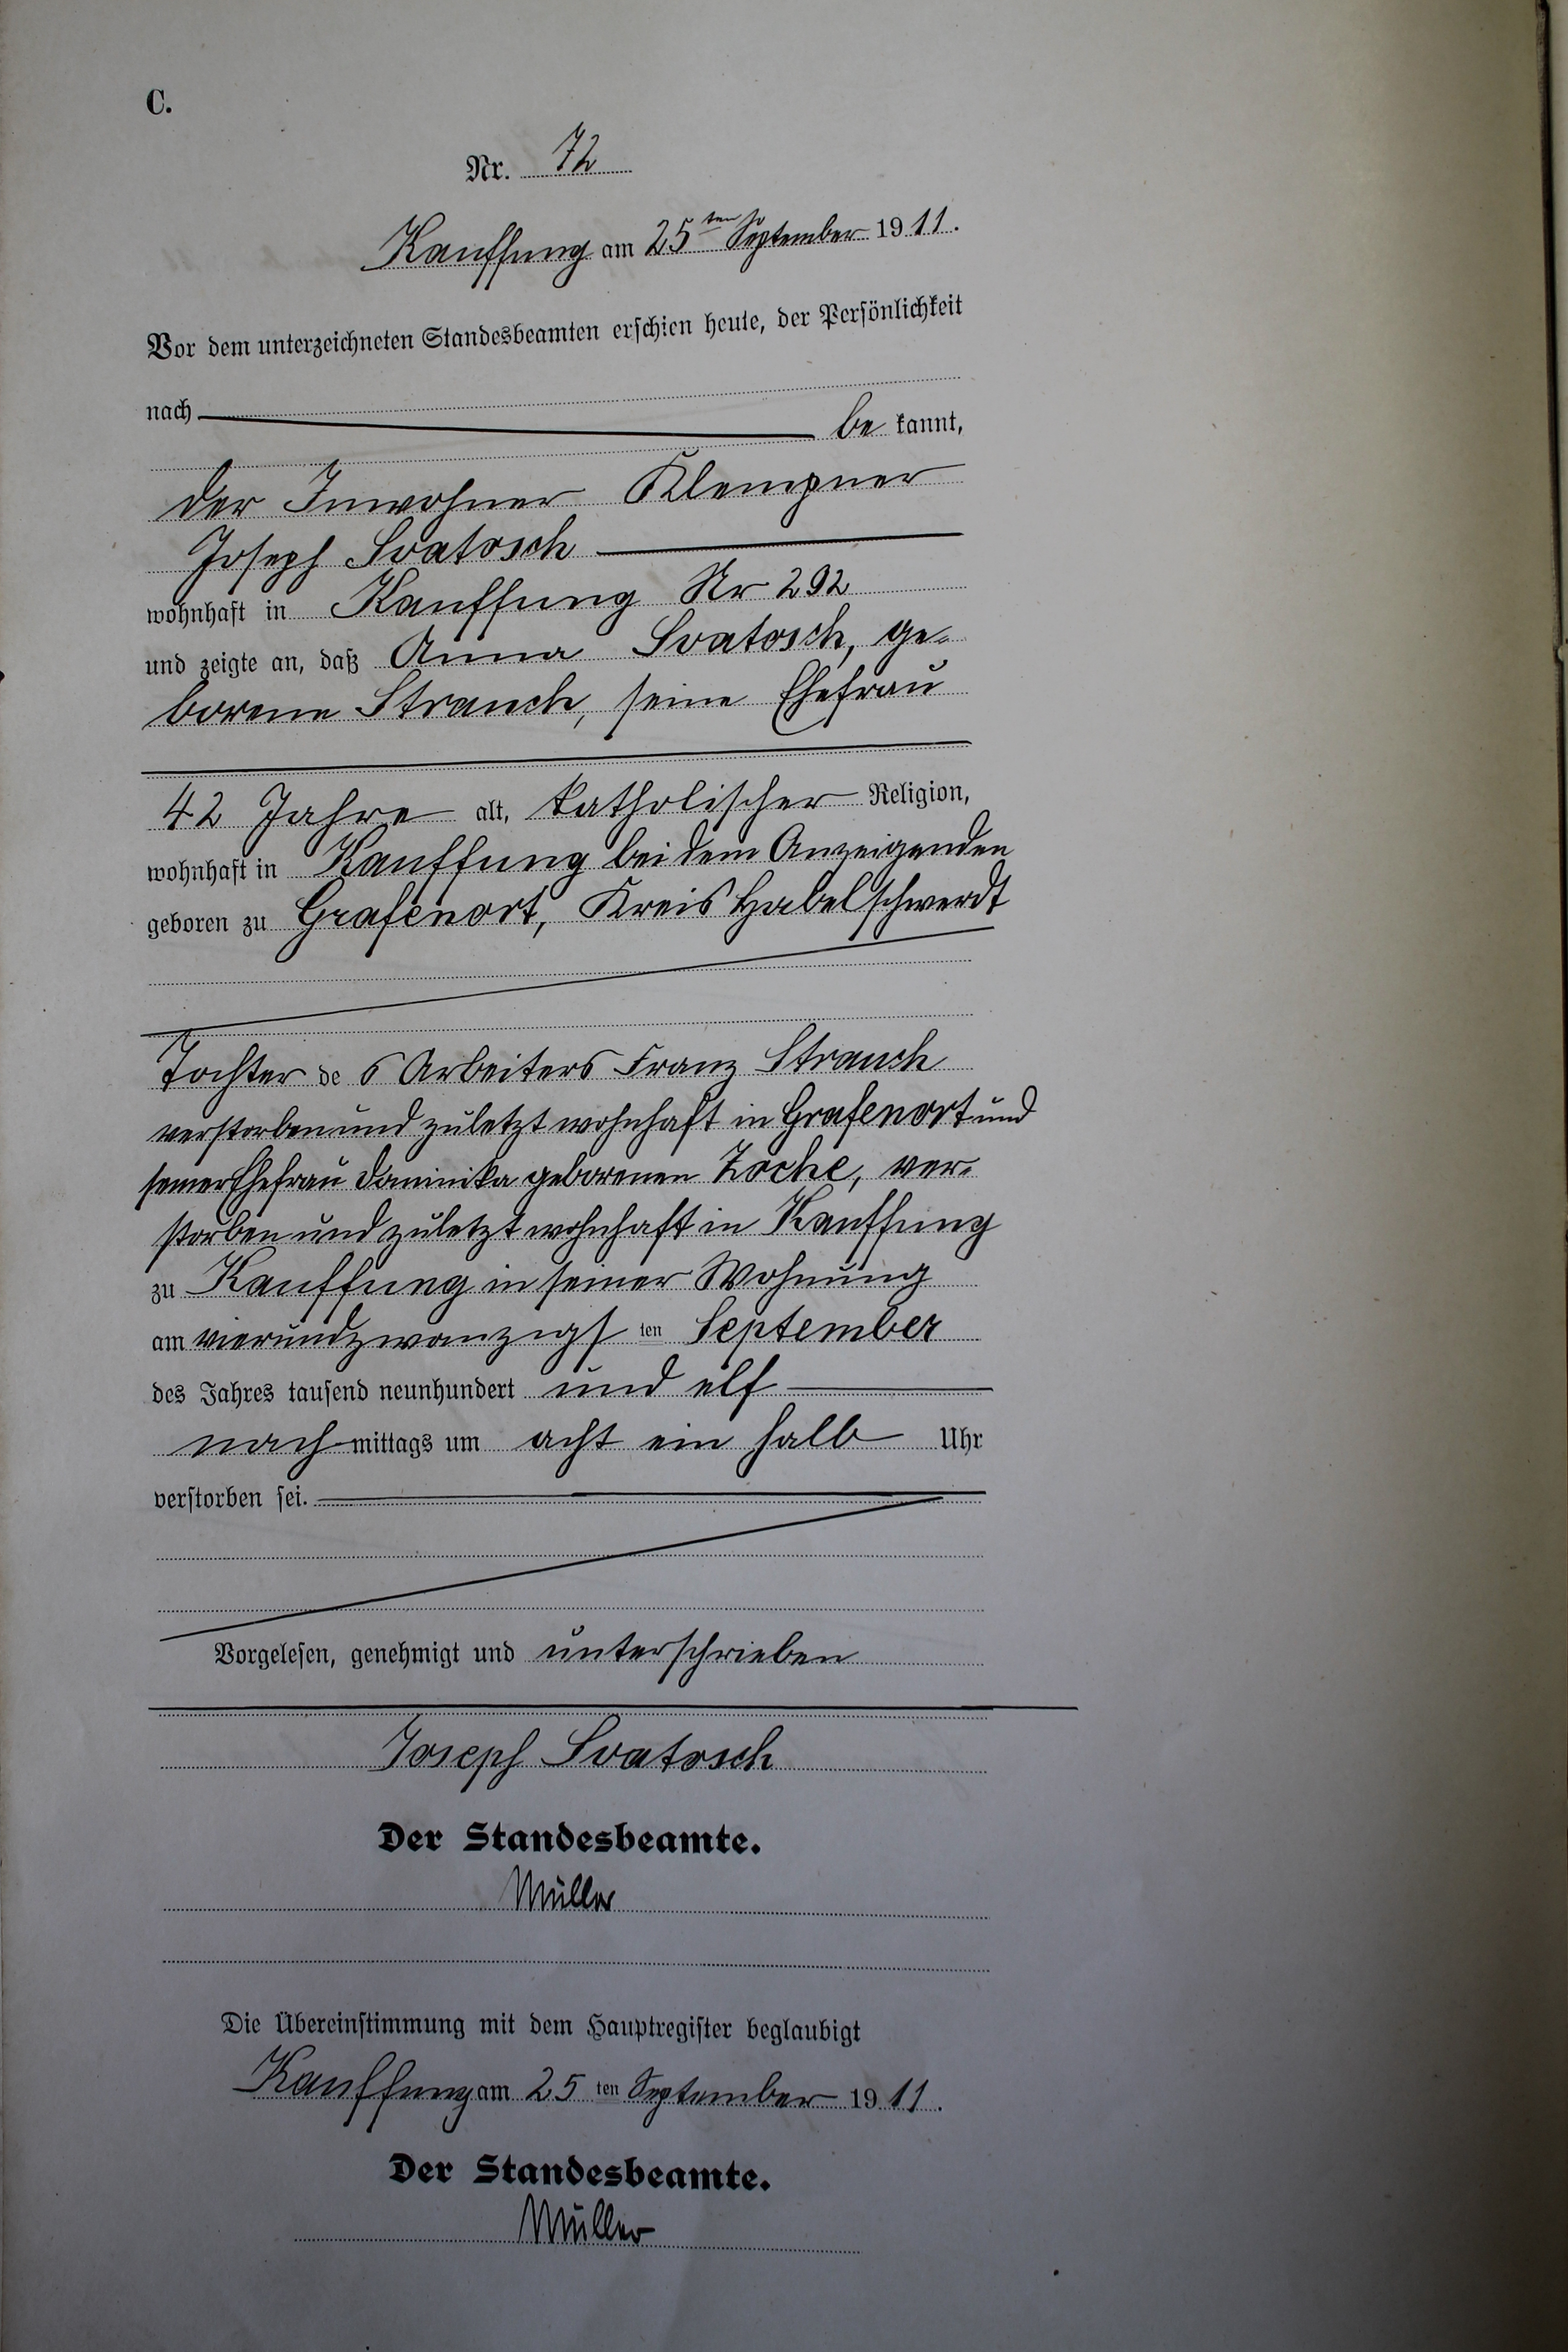 C.
Nr. 72
Kauffung am 25ten September 1911.
Vor dem unterzeichneten Standesbeamten erschien heute, der Persönlichkeit
nach be kannt,
der Inwohner Klempner
Joseph Svatosch
wohnhaft in Kauffung Nr 292
und zeigte an, daß Anna Svatosch, ge-
borene Strauch, seine Ehefrau
42 Jahre alt, katholischer Religion,
wohnhaft in Kauffung bei dem Anzeigenden
geboren zu Grafenort, Kreis Habelschwerdt
Tochter des Arbeiters Franz Strauch
verstorben und zuletzt wohnhaft in Grafenort und
seiner Ehefrau Dominika geborenen Zoche, ver-
storben und zuletzt wohnhaft in Kauffung
zu Kauffung in seiner Wohnung
am vierundzwanzigsten September
des Jahres tausend neunhundert und elf
nachmittags um acht ein halb Uhr
verstorben sei.
Vorgelesen, genehmigt und unterschrieben
Joseph Svatosch
Der Standesbeamte.
Müller
Die Übereinstimmung mit dem Hauptregister beglaubigt
Kauffung am 25ten September 1911.
Der Standesbeamte.
Müller